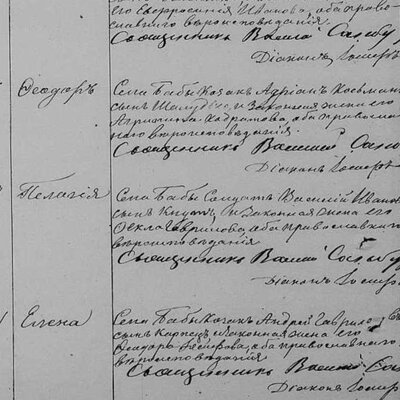 его Ѳеодосія Иванова, оба право-
славнаго вѣроисповѣданія.
Священникъ Василій
Діаконъ Іосифъ
Ѳеодоръ
Села Бабы Козакъ Адріанъ Козьминъ
сынъ и законная жена его
Агрипина оба православ
наго вѣроисповѣданія.
Священникъ Василій
Діаконъ Іосифъ
Пелагія
Села Бабы Солдатъ Василій Иванов
сынъ и законная жена его
Ѳекла Гаврилова, оба православнаго
вѣроисповѣданія
Священникъ Василій
Діаконъ Іосифъ
Елена
Села Бабы Козакъ Андрей Гаврилов
сынъ Карпецъ и законная жена его
Ѳеодора оба православнаго
вѣроисповѣданія
Священникъ Василій
Діаконъ Іосифъ